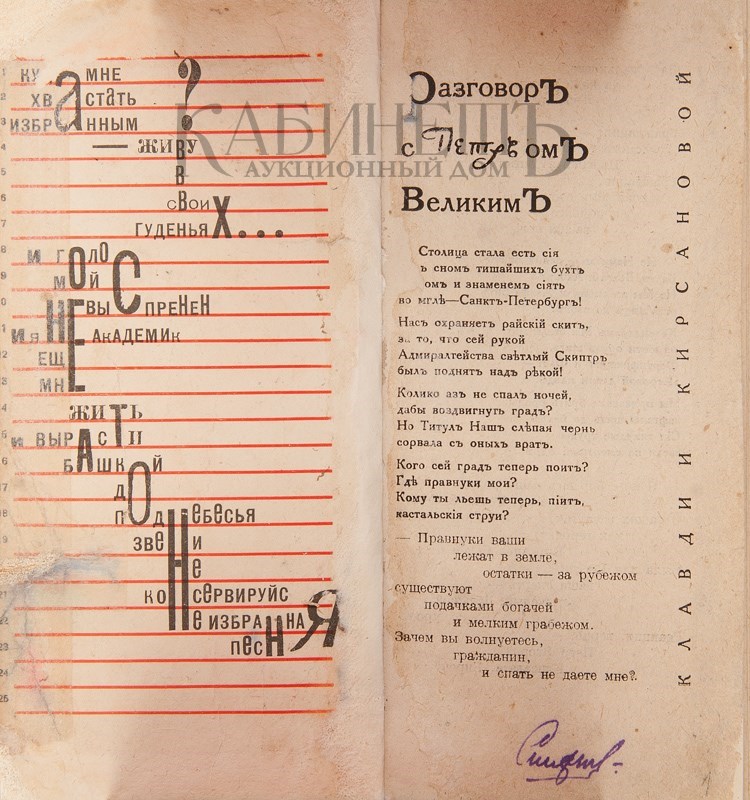 КУДА МНЕ
ХВАСТАТЬ
ИЗБРАННЫМ
— ЖИВУ
В
В
СВОИХ
ГУДЕНЬЯХ...
?
И ГОЛОС
МОЙ
НЕ ВЫСПРЕНЕН
И Я НЕ АКАДЕМИК
ЕЩЕ
МНЕ
ЖИТЬ
И ВЫРАСТИ
БАШКОЙ
ДО
ПОДНЕБЕСЬЯ
ЗВЕНИ
НЕ
КОНСЕРВИРУЙС
НЕИЗБРАННАЯ
ПЕСНЯ
КАБИНЕТЪ
АУКЦИОННЫЙ ДОМ
РазговорЪ
с ПетрѣомЪ
ВеликимЪ
Столица стала есть сія
ъ сном тишайших бухт
ом и знаменем сіять
во мглѣ—Санкт-Петербургъ!
Насъ охраняетъ райскій скит,
за то, что сей рукой
Адмиралтейства свѣтлый Скиптръ
былъ поднятъ надъ рѣкой!
Колико азъ не спалъ ночей,
дабы воздвигнуть градъ?
Но Титулъ Нашъ слѣпая чернь
сорвала съ оныхъ вратъ.
Кого сей градъ теперь поит?
Гдѣ правнуки мои?
Кому ты льешь теперь, піитъ,
кастальскія струи?
— Правнуки ваши
лежат в земле,
остатки — за рубежом
существуют
подачками богачей
и мелким грабежом.
Зачем вы волнуетесь,
гражданин,
и спать не даете мне?
КЛАВДИИ КИРСАНОВОЙ